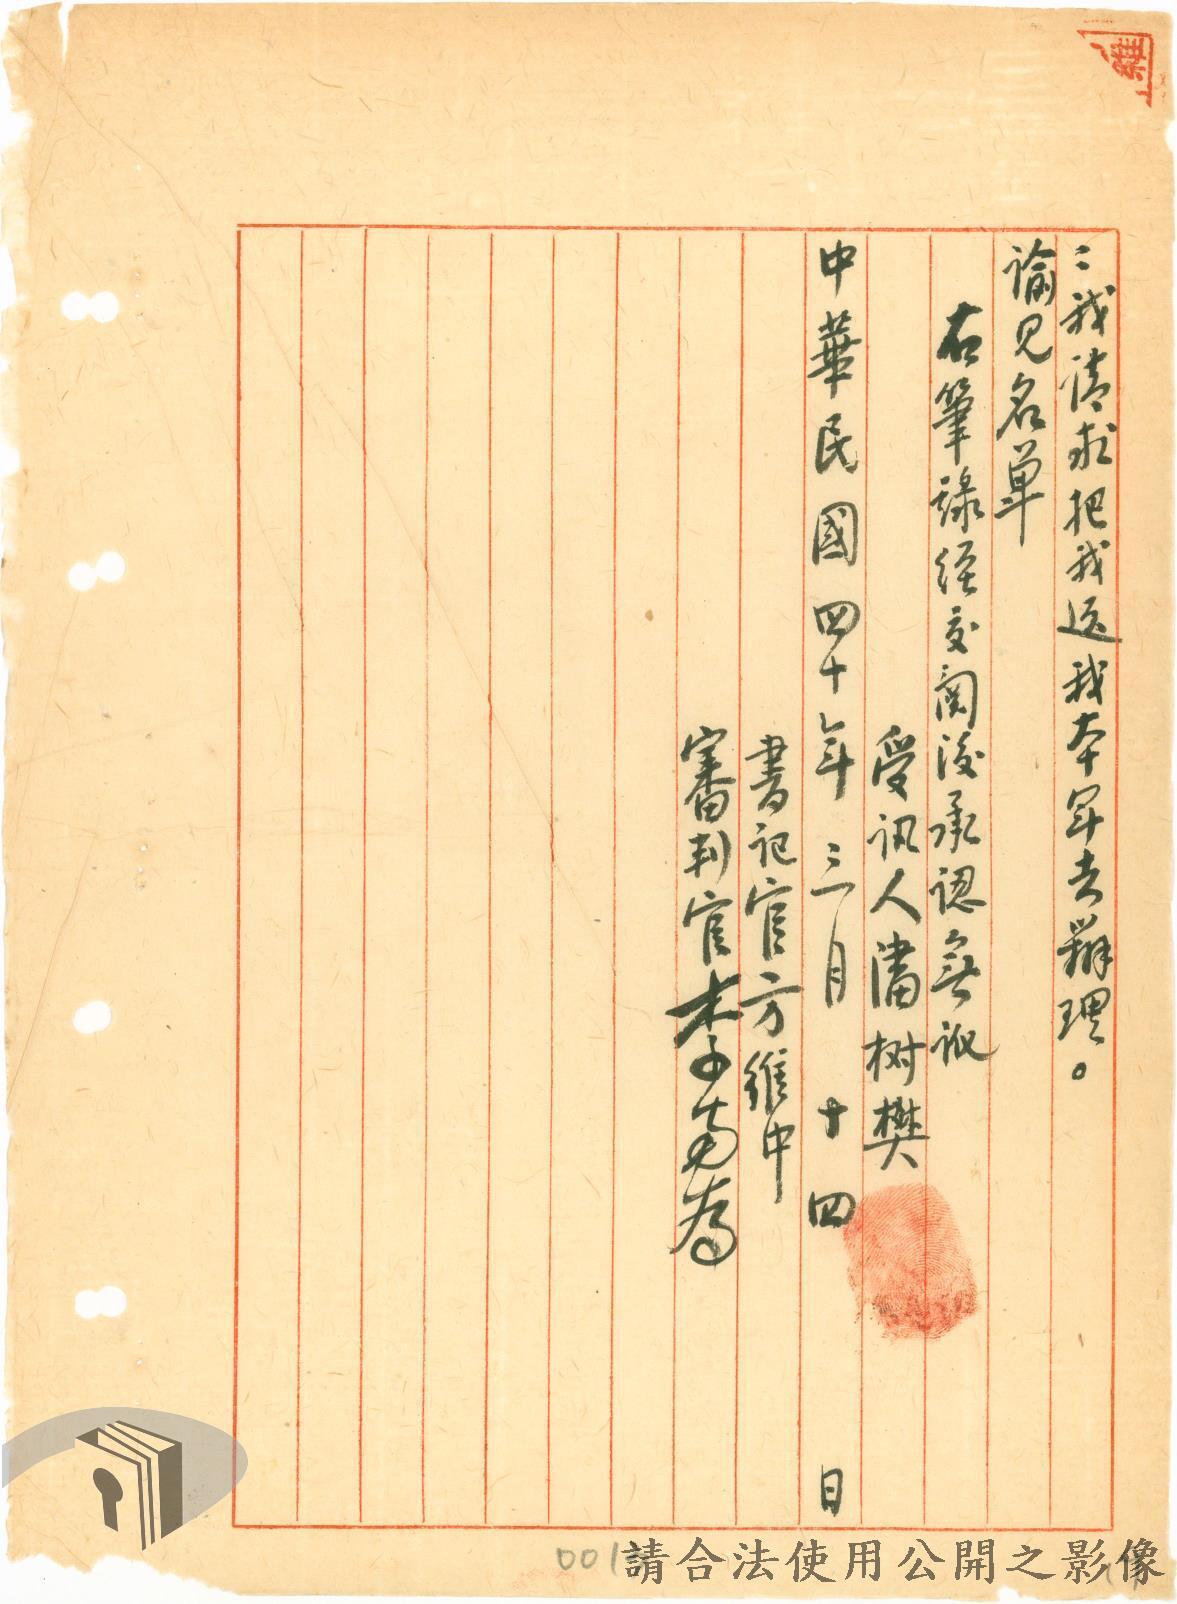 ：我請求把我送我本軍去辦理。
諭見名單
右筆錄經交閱後承認無訛
受訊人潘树樊
中華民國四十年三月十四日
書記官方維中
審判官李
001
請合法使用公開之影像